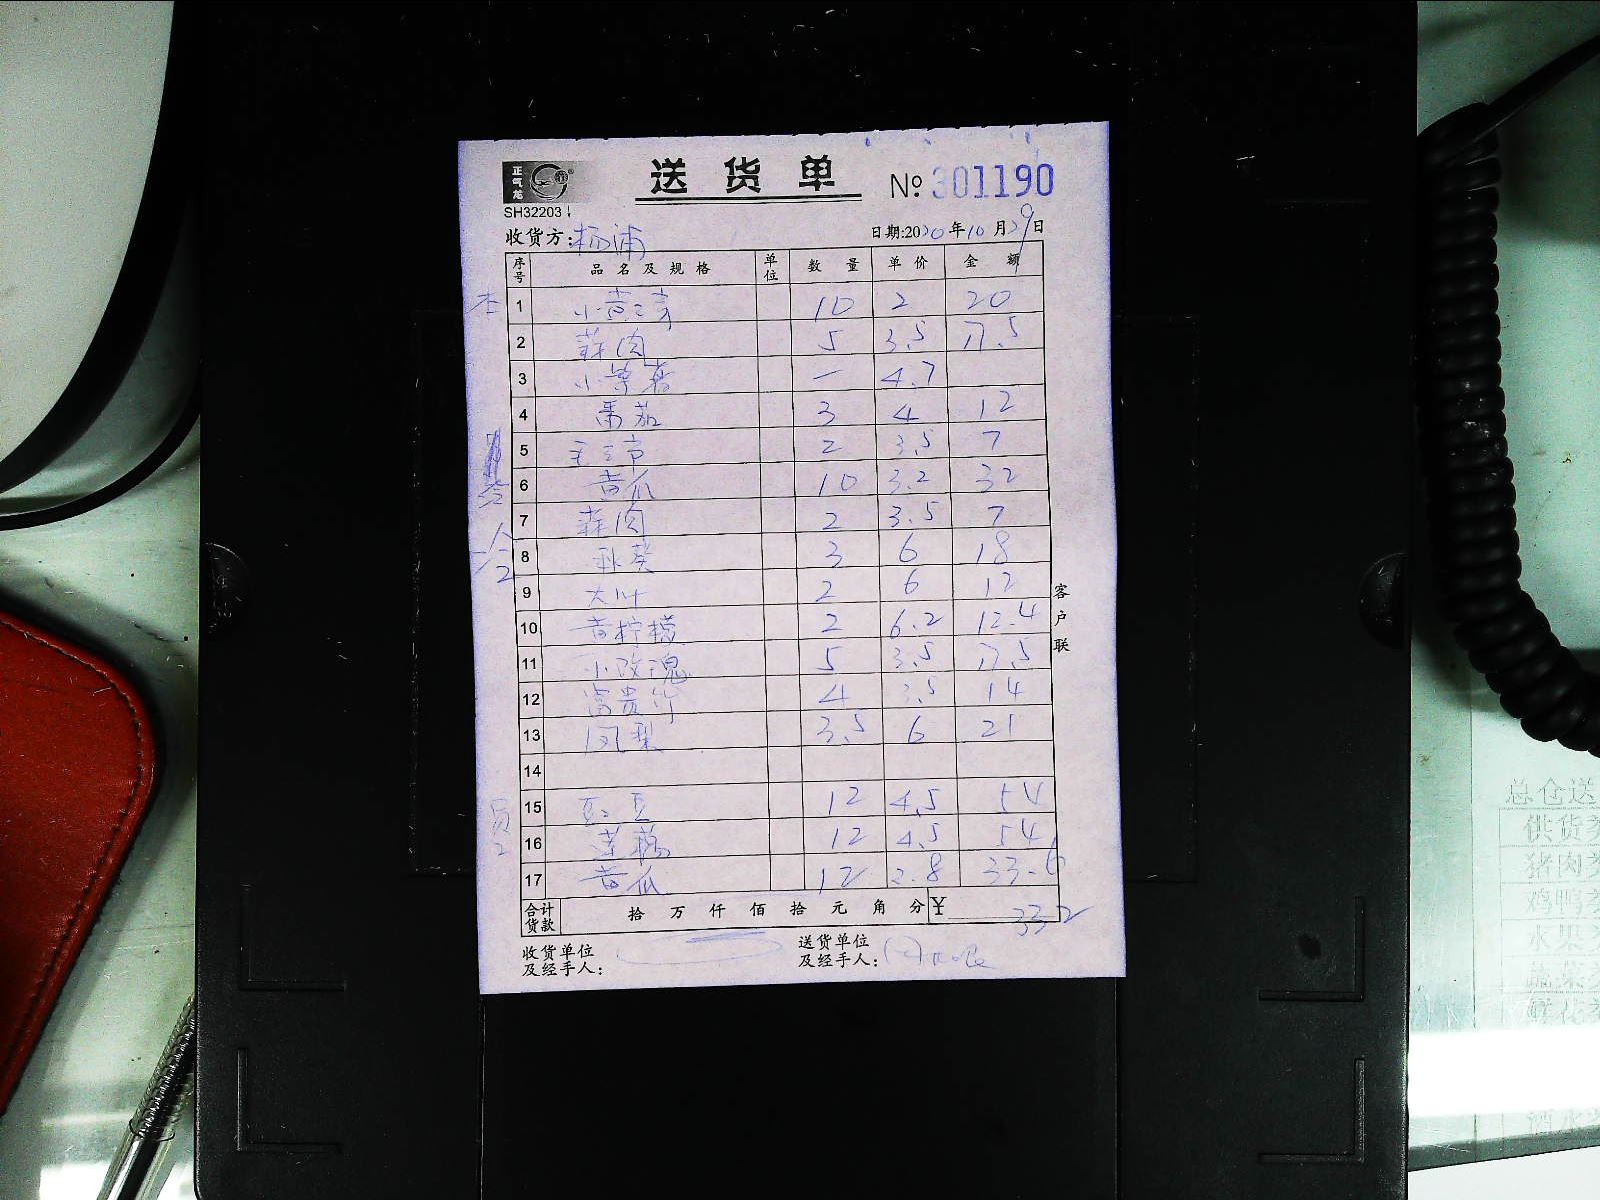 正气龙
送货单 №301190
SH32203
收货方:杨浦 日期:2020年10月29日
序号 品名及规格 单位 数量 单价 金额
1 10 2 20
2 蒜肉 5 3.5 17.5
3 一 4.7
4 番茄 3 4 12
5 2 3.5 7
6 黄瓜 10 3.2 32
7 蒜肉 2 3.5 7
8 秋葵 3 6 18
9 大叶 2 6 12
10 黄柠檬 2 6.2 12.4
11 小玫瑰 5 3.5 17.5
12 富贵竹 4 3.5 14
13 凤梨 3.5 6 21
14
15 豇豆 12 4.5 54
16 莲藕 12 4.5 54
17 黄瓜 12 2.8 33.6
合计货款 拾万仟佰拾元角分 ¥ 332
收货单位及经手人: 送货单位及经手人:
客户联
总仓送
供货
猪肉
鸡鸭
水果
蔬菜
鲜花
酒水